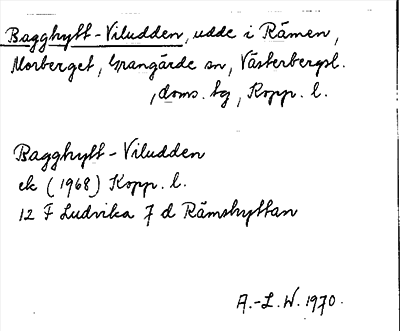 Bagghytt-Viludden, udde i Rämen,
Morberget, Grangärde sn, Västerbergsl.
, doms. tg, Kopp. l.
Bagghytt-Viludden
ek (1968) Kopp. l.
12 F Ludvika 7 d Rämshyttan
A.-L. W. 1970.